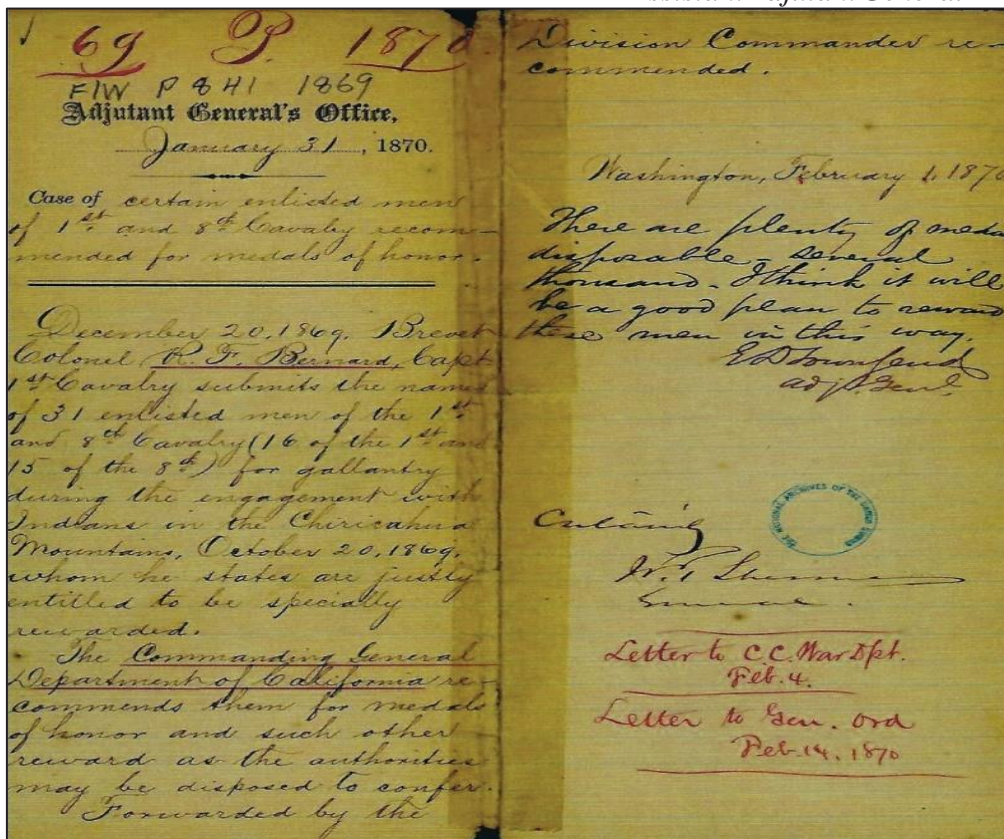 Assistant Adjutant General
69 P. 1870
F/W P 841 1869
Adjutant General's Office,
January 31, 1870.
Case of certain enlisted men
of 1st. and 8th Cavalry recom-
mended for medals of honor.
December 20, 1869. Brevet
Colonel R. F. Bernard, Capt
1st Cavalry submits the names
of 31 enlisted men of the 1st
and 8th Cavalry (16 of the 1st and
15 of the 8th) for gallantry
during the engagement with
Indians in the Chiricahua
Mountains, October 20, 1869,
whom he states are justly
entitled to be specially
rewarded.
The Commanding General
Department of California re-
commends them for medals
of honor and such other
reward as the authorities
may be disposed to confer.
Forwarded by the
Division Commander re-
commended.
Washington, February 1, 1870
There are plenty of meda
disposable - several
thousand. I think it will
be a good plan to reward
these men in this way.
E D Townsend
Adjt. Genl.
THE NATIONAL ARCHIVES OF THE UNITED STATES
Certainly
W. T. Sherman
General.
Letter to C.C. War Dpt.
Feb. 4.
Letter to Gen. Ord
Feb. 14. 1870